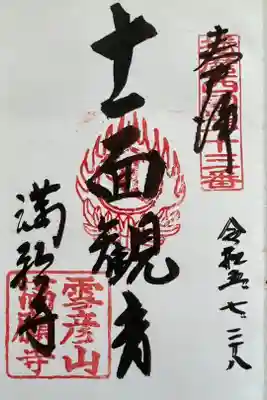 奉拝
十一面観音
満願寺
雪彦山
満願寺
令和五、七、二八